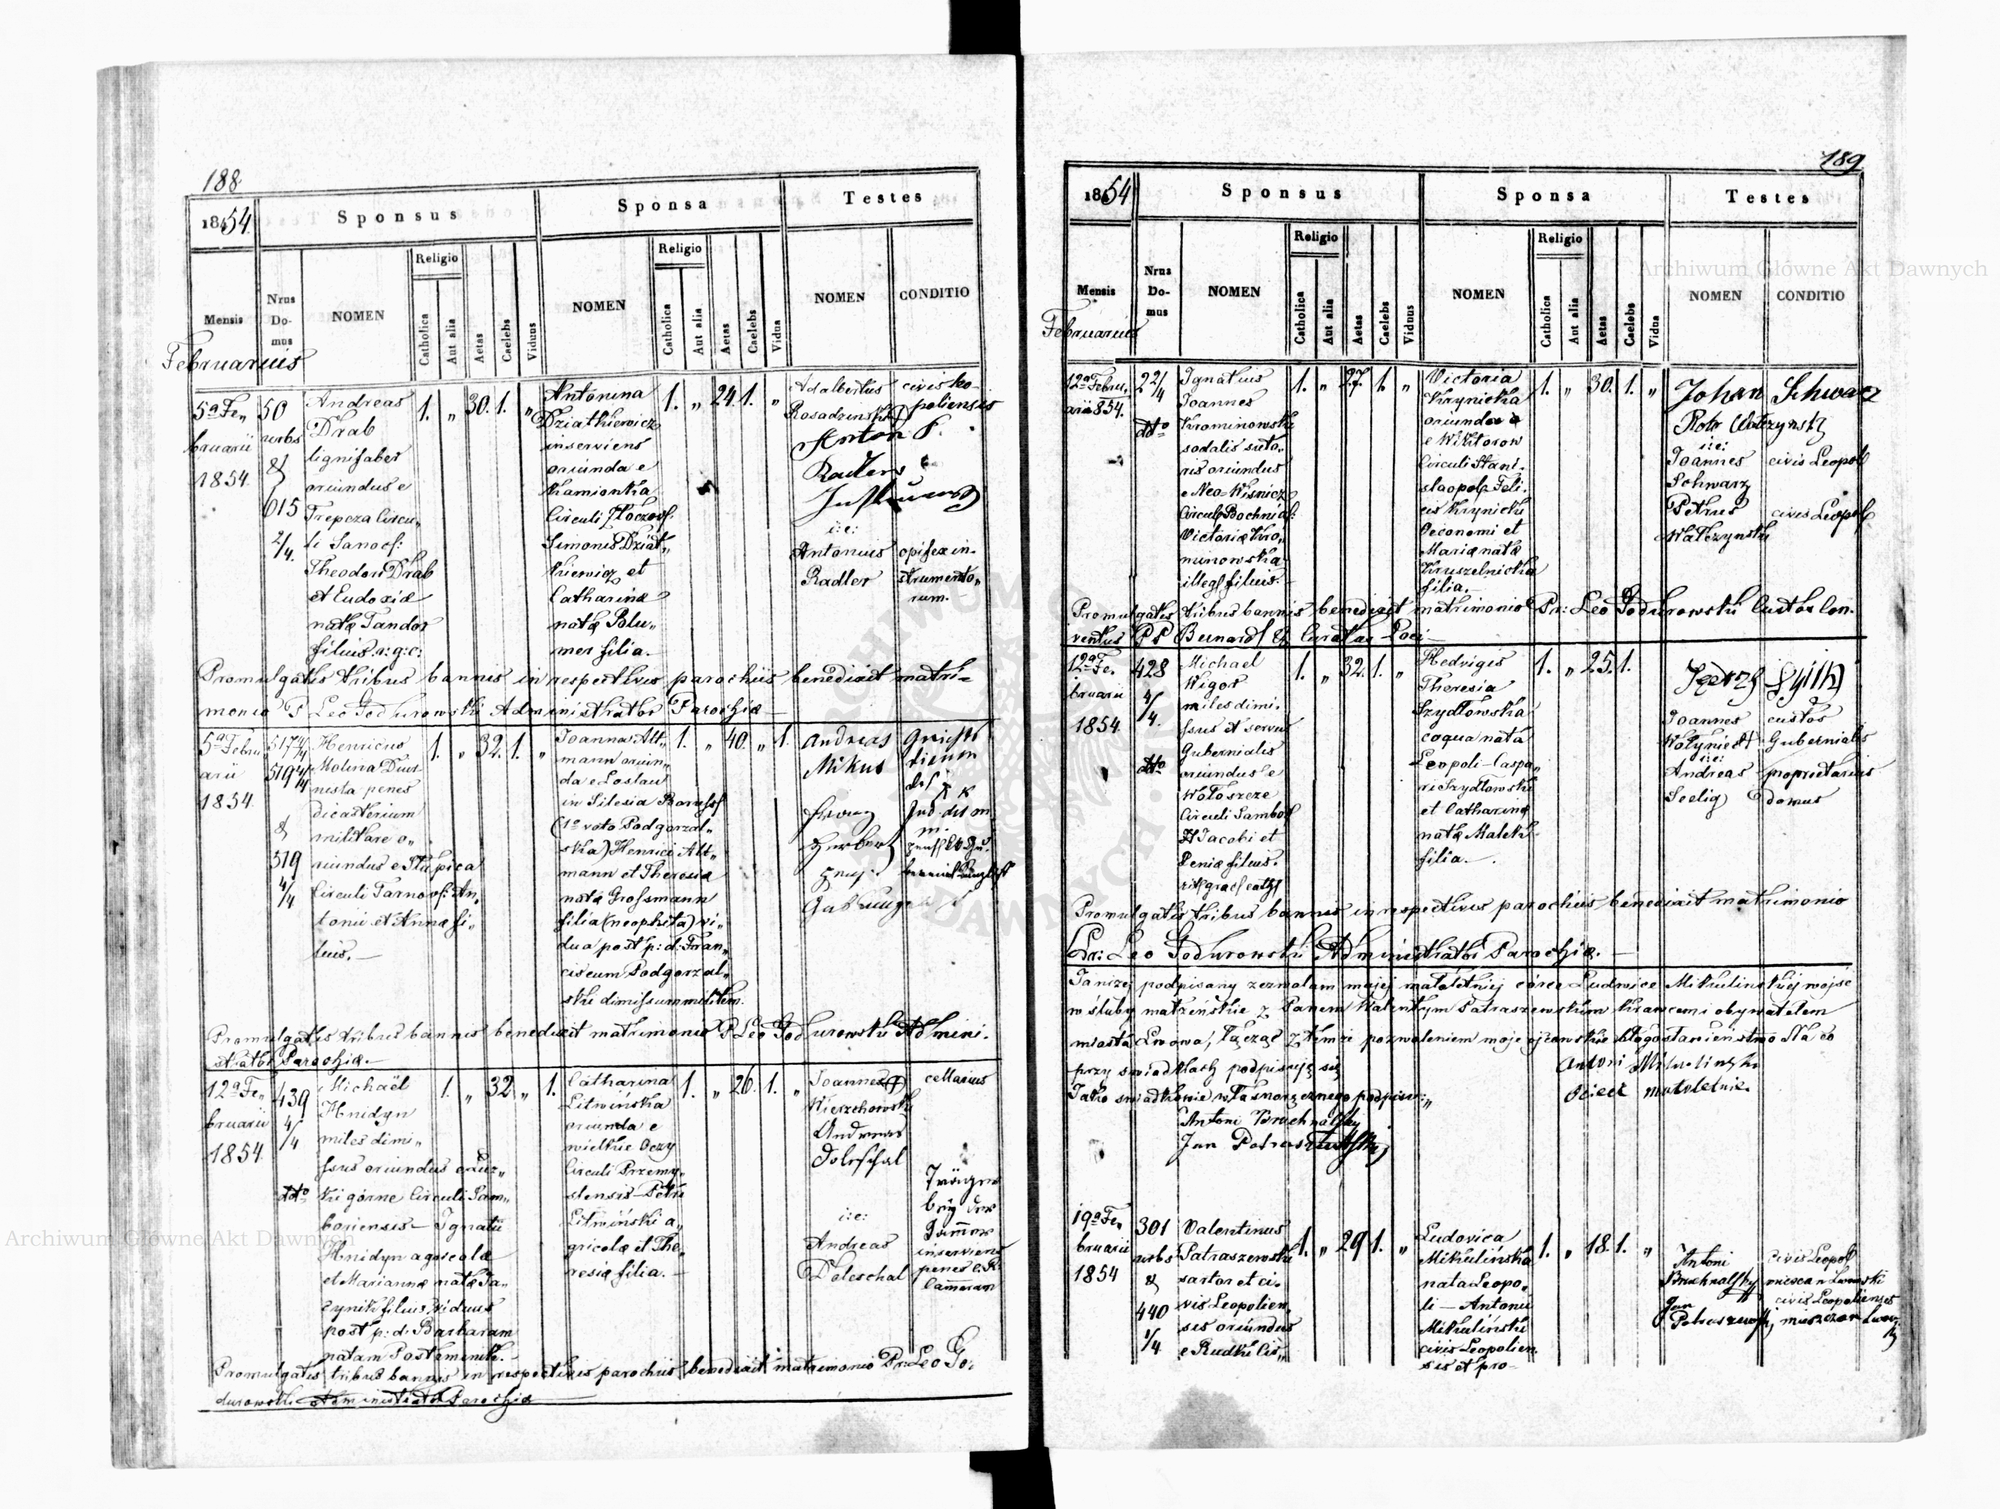 188
1854.
Sponsus
Sponsa
Testes
Mensis
Nrus Domus
NOMEN
Religio
Catholica
Aut alia
Aetas
Caelebs
Viduus
NOMEN
Religio
Catholica
Aut alia
Aetas
Caelebs
Vidua
NOMEN
CONDITIO
Februarius
5a Fe„
bruarii
1854
50
urbs
&
615
2/4.
Andreas
Drab
lignifaber
oriundus e
Trepcza Circu„
li Sanoc:
Theodori Drab
et Eudoxiæ
natæ Tandor
filius r: g: c:
1. „ 30. 1. „
Antonina
Dziatkiewicz
inserviens
oriunda e
Kamionka
Circuli Złoczov:
Simonis Dziat„
kiewicz et
Catharinæ
natæ Polu„
mer filia.
1. „ 24. 1. „
Adalbertus
Rosadzinski
Anton
Radler
i: e:
Antonius
Radler
civis Leo„
poliensis
opifex in„
strumento„
rum.
Promulgatis tribus bannis in respectivis parochiis benedixit matri„
monio P. Leo Godurowski Administrator Parochiæ
5a Febru„
arii
1854
517 4/4
519 4/4
&
519
4/4
Henricus
Molina Diur„
nista penes
dicasterium
militare o„
riundus e Słupica
Circuli Tarnov: An„
tonii et Anna fi„
lius.
1. „ 32. 1. „
Joanna Alt„
mann oriun„
da e Loslau
in Silesia Boruss:
(1o voto Podgorzal„
ska) Henrici Alt„
mann et Theresia
nata Grossmann
filia (neophita) vi„
dua post p: d: Fran„
ciscum Podgorzal„
ski dimissum militem.
1. „ 40. „ 1.
Andreas
Mikus
Promulgatis tribus bannis benedixit matrimonio P. Leo Godurowski Admini„
strator Parochiæ.
12a Fe„
bruarii
1854
439
4/4
ddto
Michaël
Hnidyn
miles dimi„
ssus oriundus e Łuz„
ki górne Circuli Sam„
boriensis Ignatii
Hnidyn agricolæ
et Mariannæ natæ Ja„
cynik filius viduus
post p: d: Barbaram
natam Postemenik.
1. „ 32 „ 1.
Catharina
Litwińska
oriunda e
wielkie Oczy
Circuli Przemy„
sliensis Petri
Litwiński a„
gricolæ et The„
resiæ filia.
1. „ 26. 1. „
Joannes
Wierzchowski
Andreas
Doleschal
i: e:
Andreas
Doleschal
cellarius
inserviens
penes C. R.
Cameram
Promulgatis tribus bannis in respectivis parochiis benedixit matrimonio Pr: Leo Go„
durowski Administrator Parochiæ
189
1854
Sponsus
Sponsa
Testes
Mensis
Nrus Domus
NOMEN
Religio
Catholica
Aut alia
Aetas
Caelebs
Viduus
NOMEN
Religio
Catholica
Aut alia
Aetas
Caelebs
Vidua
NOMEN
CONDITIO
Februarius
12a Febru„
arii 854.
22/4
ddto
Ignatius
Joannes
Krominowski
sodalis suto„
ris oriundus
e Neo-Wisnicz
Circuli Bochnia:
Victoriæ Kro„
minowska
illeg: filius.
1. „ 27. 1. „
Victoria
Krynicka
oriunda
e Wiktorow
Circuli Stani„
slaopol: Feli„
cis Krynicki
Oeconomi et
Maria natæ
Kruszelnicka
filia.
1. „ 30. 1. „
Johan Schwarz
Piotr Wałczynski
i: e:
Joannes
Schwarz
Petrus
Wałczynski
civis Leopol
civis Leopol
Promulgatis tribus bannis benedixit matrimonio Pr: Leo Godurowski Custos Con„
ventus P P Bernard: & Curatus Loci
12a Fe„
bruarii
1854
428
4/4.
ddto
Michael
Wigor
miles dimi„
ssus et servus
Gubernialis
oriundus e
Wołoszcze
Circuli Sambor:
Jacobi et
Xeniæ filius.
rit: græc: cath:
1. „ 32. 1. „
Hedvigis
Theresia
Szydłowska
coqua nata
Leopoli Caspa„
ri Szydłowski
et Catharinæ
natæ Małek
filia.
1. „ 25. 1.
Joannes
Wołyniecki
i: e:
Andreas
Seelig
custos
Gubernialis
proprietarius
domus
Promulgatis tribus bannis in respectivis parochiis benedixit matrimonio
Pr: Leo Godurowski Administrator Parochiæ.
Ja niżej podpisany zezwalam mojej małoletniej córce Ludwice Mikulinskiej wejść
w śluby małżeńskie z Panem Walentym Patraszewskim krawcem i obywatelem
miasta Lwowa, łącząc z tem że pozwoleniem moje ojcowskie błogosławieństwo Na co
przy świadkach podpisuję się
Antoni Mikulinski
Ociec małoletnie.
Jako świadkowie własnoręcznego podpisu:
Antoni Bruchnalski
Jan Patraszewski
19a Fe„
bruarii
1854
301
urbs
&
440
1/4
Valentinus
Patraszewski
sartor et ci„
vis Leopolien„
sis oriundus
e Rudki Cir„
1. „ 29. 1. „
Ludovica
Mikulińska
nata Leopo„
li — Antonii
Mikuliński
civis Leopolien„
sis et pro„
1. „ 18. 1. „
Antoni
Bruchnalski
Jan
Patraszewski
civis Leopol
mieszcan Lwowski
civis Leopoliensis
mieszczan Lwows
ki
Archiwum Główne Akt Dawnych
Archiwum Główne Akt Dawnych
ARCHIWUM
DAWNYCH